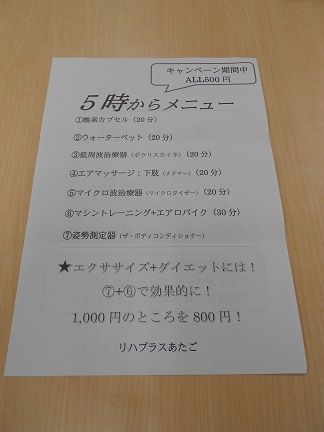 キャンペーン期間中
ALL500円
５時からメニュー
①酸素カプセル（20分）
②ウォーターベット（20分）
③低周波治療器（ポラリスカイネ）（20分）
④エアマッサージ：下肢（メドマー）（20分）
⑤マイクロ波治療器（マイクロタイザー）（20分）
⑥マシントレーニング+エアロバイク（30分）
⑦姿勢測定器（ザ・ボディコンディショナー）
★エクササイズ+ダイエットには！
⑦+⑥で効果的に！
1,000円のところを800円！
リハプラスあたご